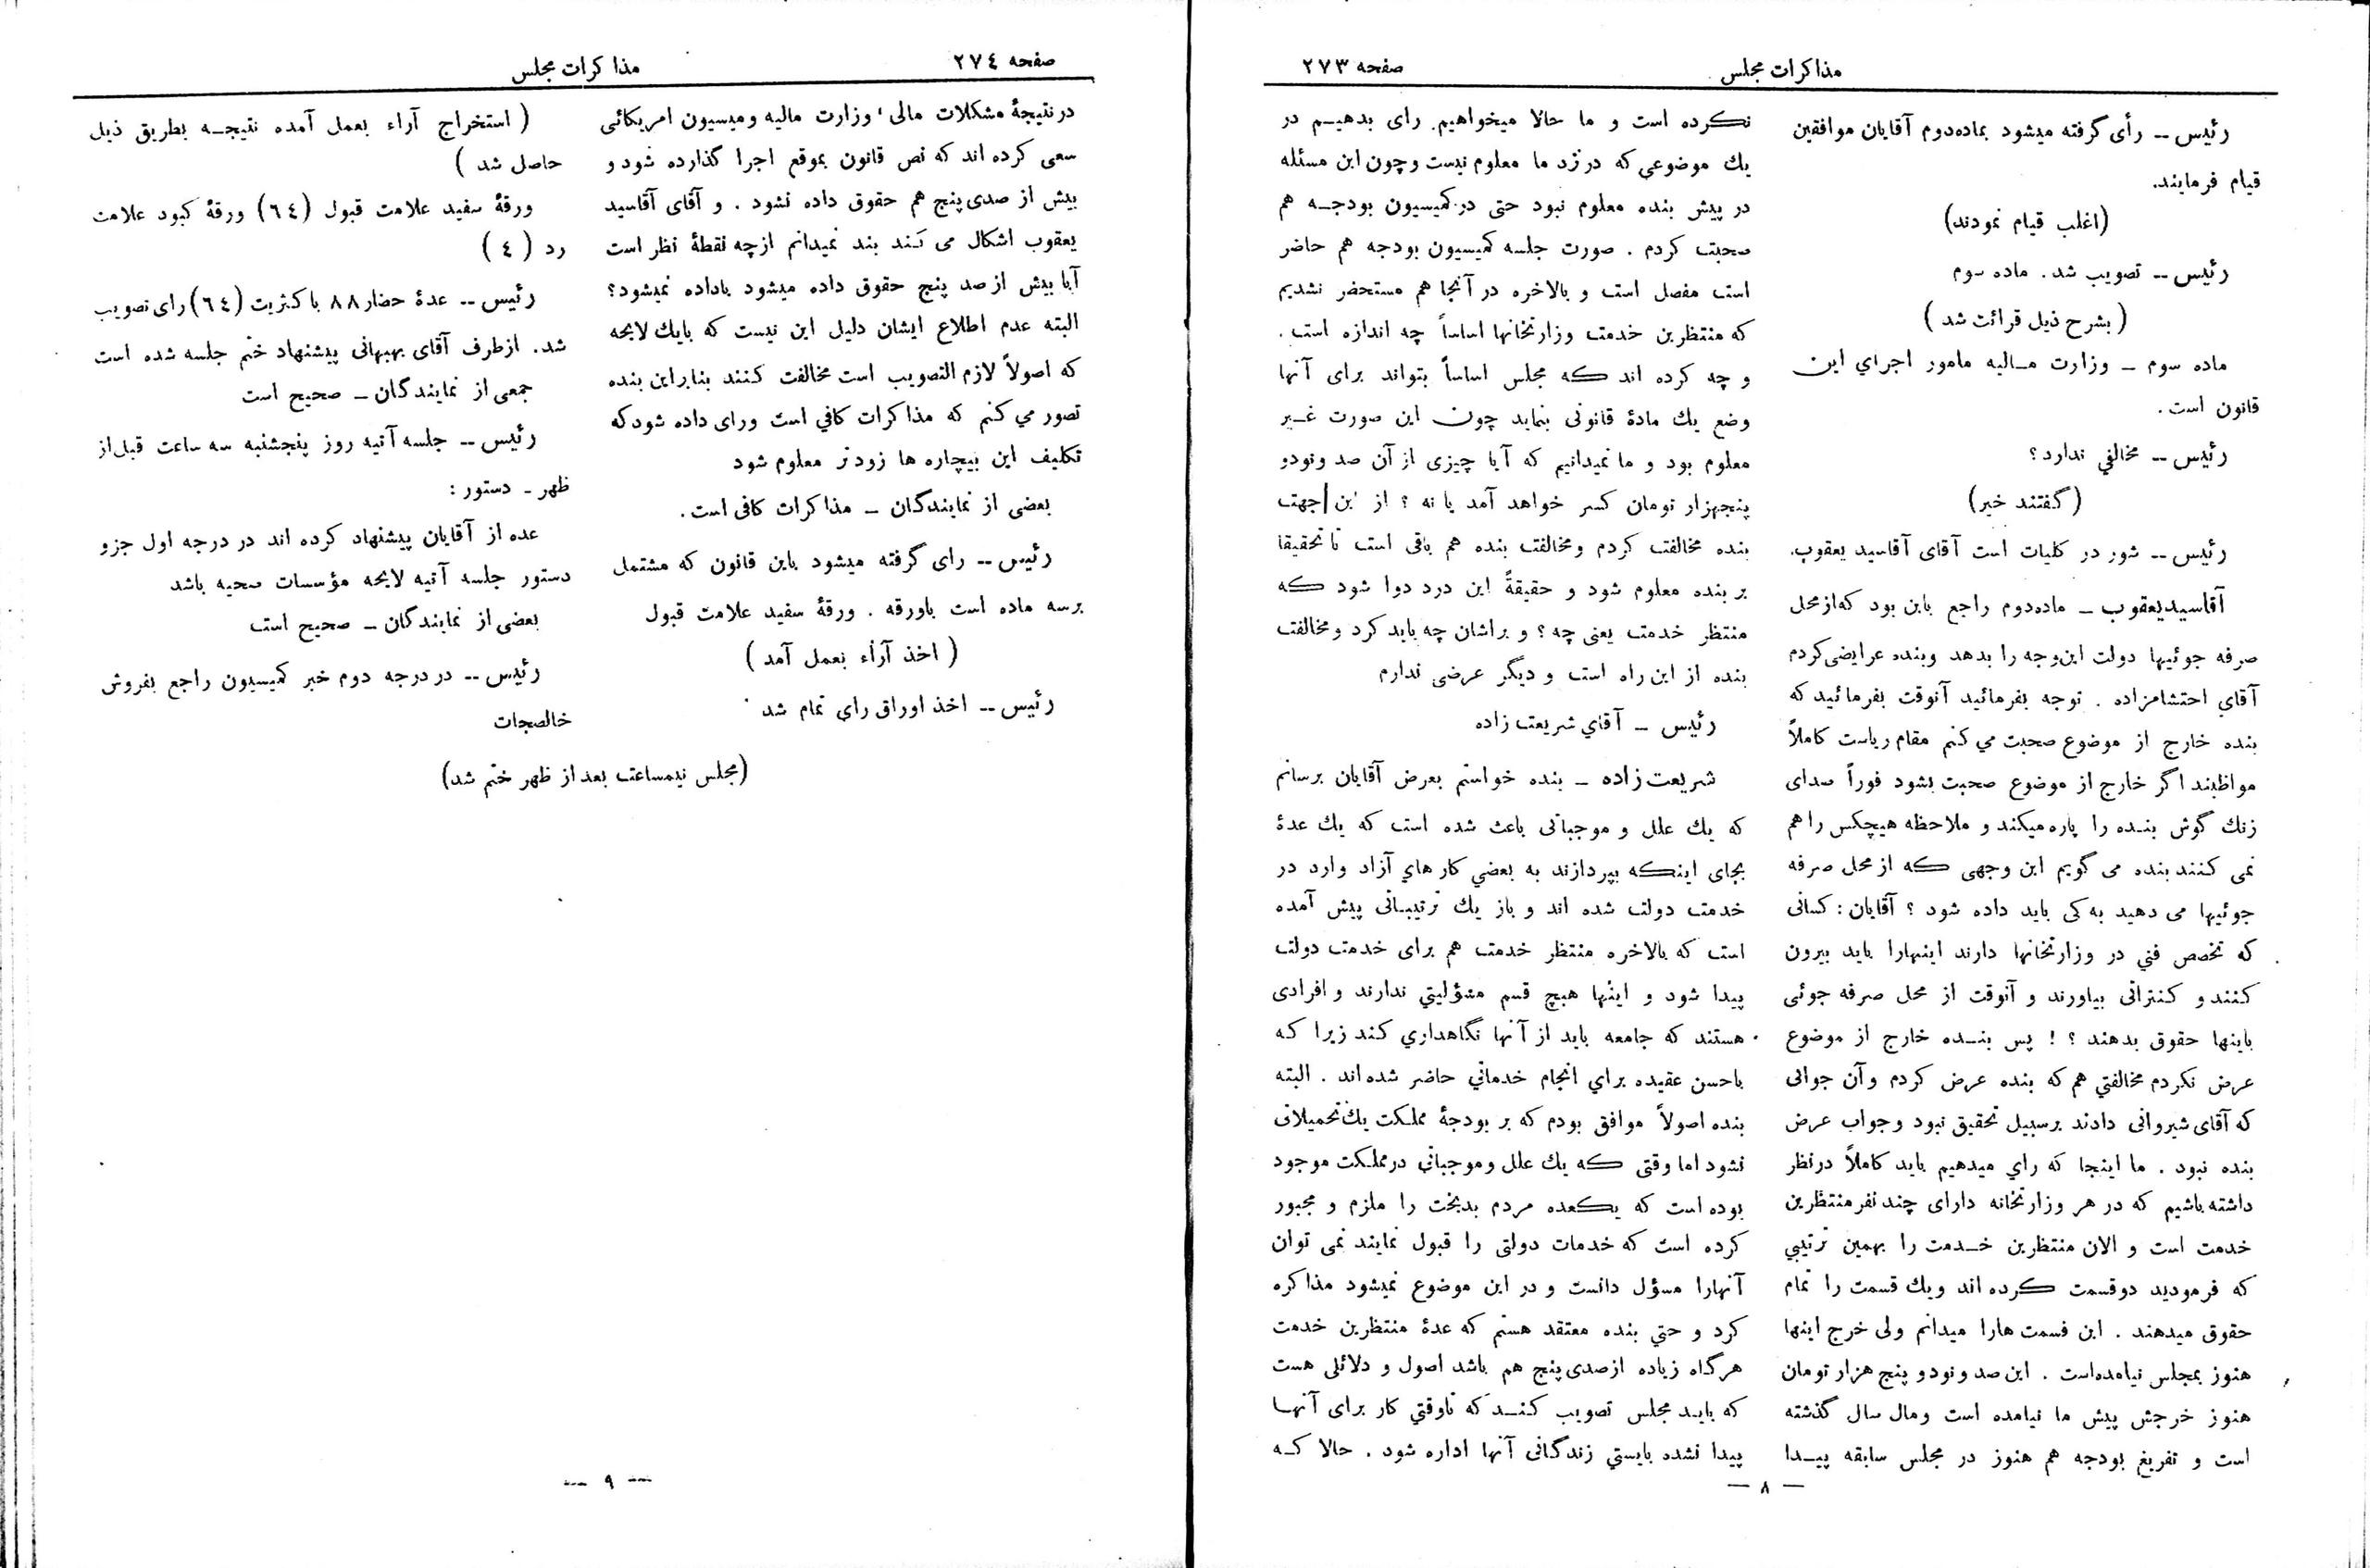 مذاکرات مجلس
صفحه ۲۷۳
رئیس -- رأی گرفته میشود بماده‌دوم آقایان موافقین
قیام فرمایند.
(اغلب قیام نمودند)
رئیس -- تصویب شد. ماده سوم
(بشرح ذیل قرائت شد)
ماده سوم - وزارت مالیه مامور اجرای این
قانون است.
رئیس -- مخالفی ندارد؟
(گفتند خیر)
رئیس -- شور در کلیات است آقای آقاسید یعقوب.
آقاسیدیعقوب - ماده‌دوم راجع باین بود که‌از محل
صرفه جوئیها دولت این‌وجه را بدهد وبنده عرایضی‌کردم
آقای احتشامزاده . توجه بفرمائید آنوقت بفرمائید که
بنده خارج از موضوع صحبت می کنم مقام ریاست کاملاً
مواظبند اگر خارج از موضوع صحبت بشود فوراً صدای
زنك گوش بنده را پاره میکند و ملاحظه هیچکس را هم
نمی کنند بنده می گویم این وجهی که از محل صرفه
جوئیها می دهید به کی باید داده شود ؟ آقایان : کسانی
که تخصص فنی در وزارتخانها دارند اینهارا باید بیرون
کنند و کنتراتی بیاورند و آنوقت از محل صرفه جوئی
باینها حقوق بدهند ؟ ! پس بنده خارج از موضوع
عرض نکردم مخالفتی هم که بنده عرض کردم وآن جوابی
که آقای شیروانی دادند برسبیل تحقیق نبود وجواب عرض
بنده نبود . ما اینجا که رای میدهیم باید کاملاً درنظر
داشته باشیم که در هر وزارتخانه دارای چند نفر منتظرین
خدمت است و الان منتظرین خدمت را بهمین ترتیبی
که فرمودید دوقسمت کرده اند ویك قسمت را تمام
حقوق میدهند . این قسمت هارا میدانم ولی خرج اینها
هنوز بمجلس نیامده‌است . این صد و نود و پنج هزار تومان
هنوز خرجش پیش ما نیامده است ومال سال گذشته
است و تفریغ بودجه هم هنوز در مجلس سابقه پیدا
نکرده است و ما حالا میخواهیم. رای بدهیم در
یك موضوعی که در نزد ما معلوم نیست وچون این مسئله
در پیش بنده معلوم نبود حتی در کمیسیون بودجه هم
صحبت کردم . صورت جلسه کمیسیون بودجه هم حاضر
است مفصل است و بالاخره در آنجا هم مستحضر نشدیم
که منتظرین خدمت وزارتخانها اساساً چه اندازه است .
و چه کرده اند که مجلس اساساً بتواند برای آنها
وضع یك مادهٔ قانونی بنماید چون این صورت غیر
معلوم بود و ما نمیدانیم که آیا چیزی از آن صد ونودو
پنجهزار تومان کسر خواهد آمد یا نه ؟ از این جهت
بنده مخالفت کردم ومخالفت بنده هم باقی است تا تحقیقا
بر بنده معلوم شود و حقیقةً این درد دوا شود که
منتظر خدمت یعنی چه ؟ و براشان چه باید کرد ومخالفت
بنده از این راه است و دیگر عرضی ندارم
رئیس - آقای شریعت زاده
شریعت زاده - بنده خواستم بعرض آقایان برسانم
که یك علل و موجباتی باعث شده است که یك عدهٔ
بجای اینکه بپردازند به بعضی کار های آزاد وارد در
خدمت دولت شده اند و باز یك ترتیباتی پیش آمده
است که بالاخره منتظر خدمت هم برای خدمت دولت
پیدا شود و اینها هیچ قسم مسؤلیتی ندارند و افرادی
هستند که جامعه باید از آنها نگاهداری کند زیرا که
باحسن عقیده برای انجام خدماتی حاضر شده‌اند . البته
بنده اصولاً موافق بودم که بر بودجهٔ مملکت یك تحمیلاتی
نشود اما وقتی که یك علل وموجباتی درمملکت موجود
بوده است که یکعده مردم بدبخت را ملزم و مجبور
کرده است که خدمات دولتی را قبول نمایند نمی توان
آنهارا مسؤل دانست و در این موضوع نمیشود مذاکره
کرد و حتی بنده معتقد هستم که عدهٔ منتظرین خدمت
هرگاه زیاده ازصدی پنج هم باشد اصول و دلائلی هست
که باید مجلس تصویب کند که تاوقتی کار برای آنها
پیدا نشده بایستی زندگانی آنها اداره شود . حالا که
— ۸ —
صفحه ۲۷٤
مذاکرات مجلس
درنتیجهٔ مشکلات مالی، وزارت مالیه ومیسیون امریکائی
سعی کرده اند که نص قانون بموقع اجرا گذارده شود و
بیش از صدی پنج هم حقوق داده نشود . و آقای آقاسید
یعقوب اشکال می کنند بند نمیدانم ازچه نقطهٔ نظر است
آیا بیش از صد پنج حقوق داده میشود یاداده نمیشود؟
البته عدم اطلاع ایشان دلیل این نیست که بایك لایحه
که اصولاً لازم التصویب است مخالفت کنند بنابراین بنده
تصور می کنم که مذاکرات کافی است ورای داده شود که
تکلیف این بیچاره ها زودتر معلوم شود
بعضی از نمایندگان - مذاکرات کافی است.
رئیس -- رای گرفته میشود باین قانون که مشتمل
برسه ماده است باورقه . ورقهٔ سفید علامت قبول
( اخذ آراء بعمل آمد )
رئیس -- اخذ اوراق رای تمام شد
( استخراج آراء بعمل آمده نتیجه بطریق ذیل
حاصل شد )
ورقهٔ سفید علامت قبول (٦٤) ورقهٔ کبود علامت
رد ( ٤ )
رئیس -- عدهٔ حضار ۸۸ با کثریت (٦٤) رای تصویب
شد. ازطرف آقای بهبهانی پیشنهاد ختم جلسه شده است
جمعی از نمایندگان - صحیح است
رئیس -- جلسه آتیه روز پنجشنبه سه ساعت قبل‌از
ظهر - دستور :
عده از آقایان پیشنهاد کرده اند در درجه اول جزو
دستور جلسه آتیه لایحه مؤسسات صحیه باشد
بعضی از نمایندگان - صحیح است
رئیس -- در درجه دوم خبر کمیسیون راجع بفروش
خالصجات
(مجلس نیمساعت بعد از ظهر ختم شد)
— ۹ —